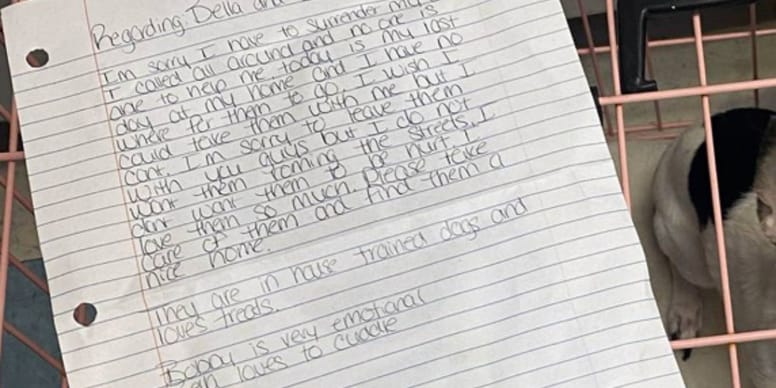 Regarding: Bella and
I'm sorry I have to surrender my
I called all around and no one is
able to help me. today is my last
day at my home and I have no
where for them to go. I wish I
could take them with me but I
cant. I'm sorry to leave them
with you guys but I do not
want them roming the streets. I
dont want them to be hurt. I
love them so much. Please take
care of them and find them a
nice home.
They are in house trained dogs and
loves treats.
is very emotional
loves to cuddle